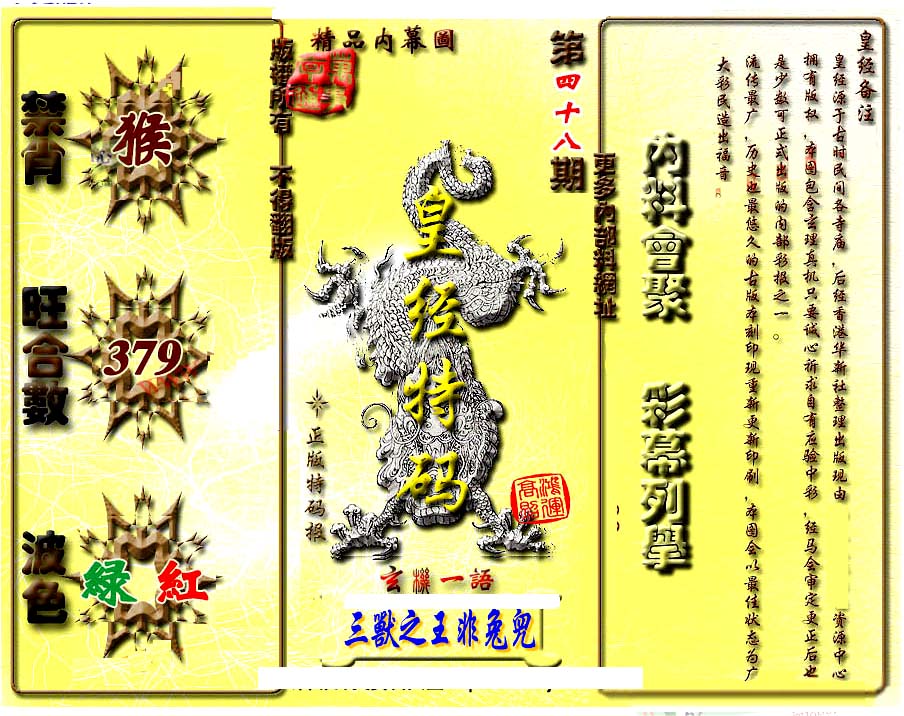 精品內幕圖
第四十八期
版權所有 不得翻版
更多內部料網址
禁肖
猴
旺合數
379
波色
綠 紅
皇经特码
正版特码报
鴻運高照
玄機一語
三獸之王非兔兕
內料會聚
彩幕列舉
皇经备注
皇经源于古时民间各寺庙，后经香港华新社整理出版现由 资源中心
拥有版权，本图包含玄理真机只要诚心祈求自有应验中彩，经马会审定更正后也
是少数可正式出版的内部彩报之一。
流传最广，历史也最悠久的古版本刻印现重新更新印刷，本图会以最佳状态为广
大彩民造出福音。